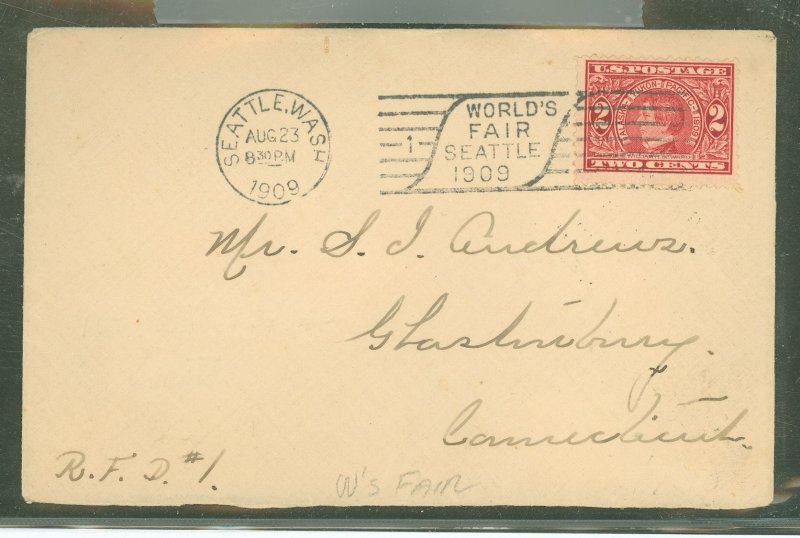 SEATTLE, WASH
AUG 23
8 30 PM
1909
1
WORLD'S
FAIR
SEATTLE
1909
U.S. POSTAGE
ALASKA YUKON PACIFIC 1909
2 2
WILLIAM H. SEWARD
TWO CENTS
Mr. S. I. Andrews.
Glastonbury.
Connecticut.
R. F. D. #1.
W's FAIR